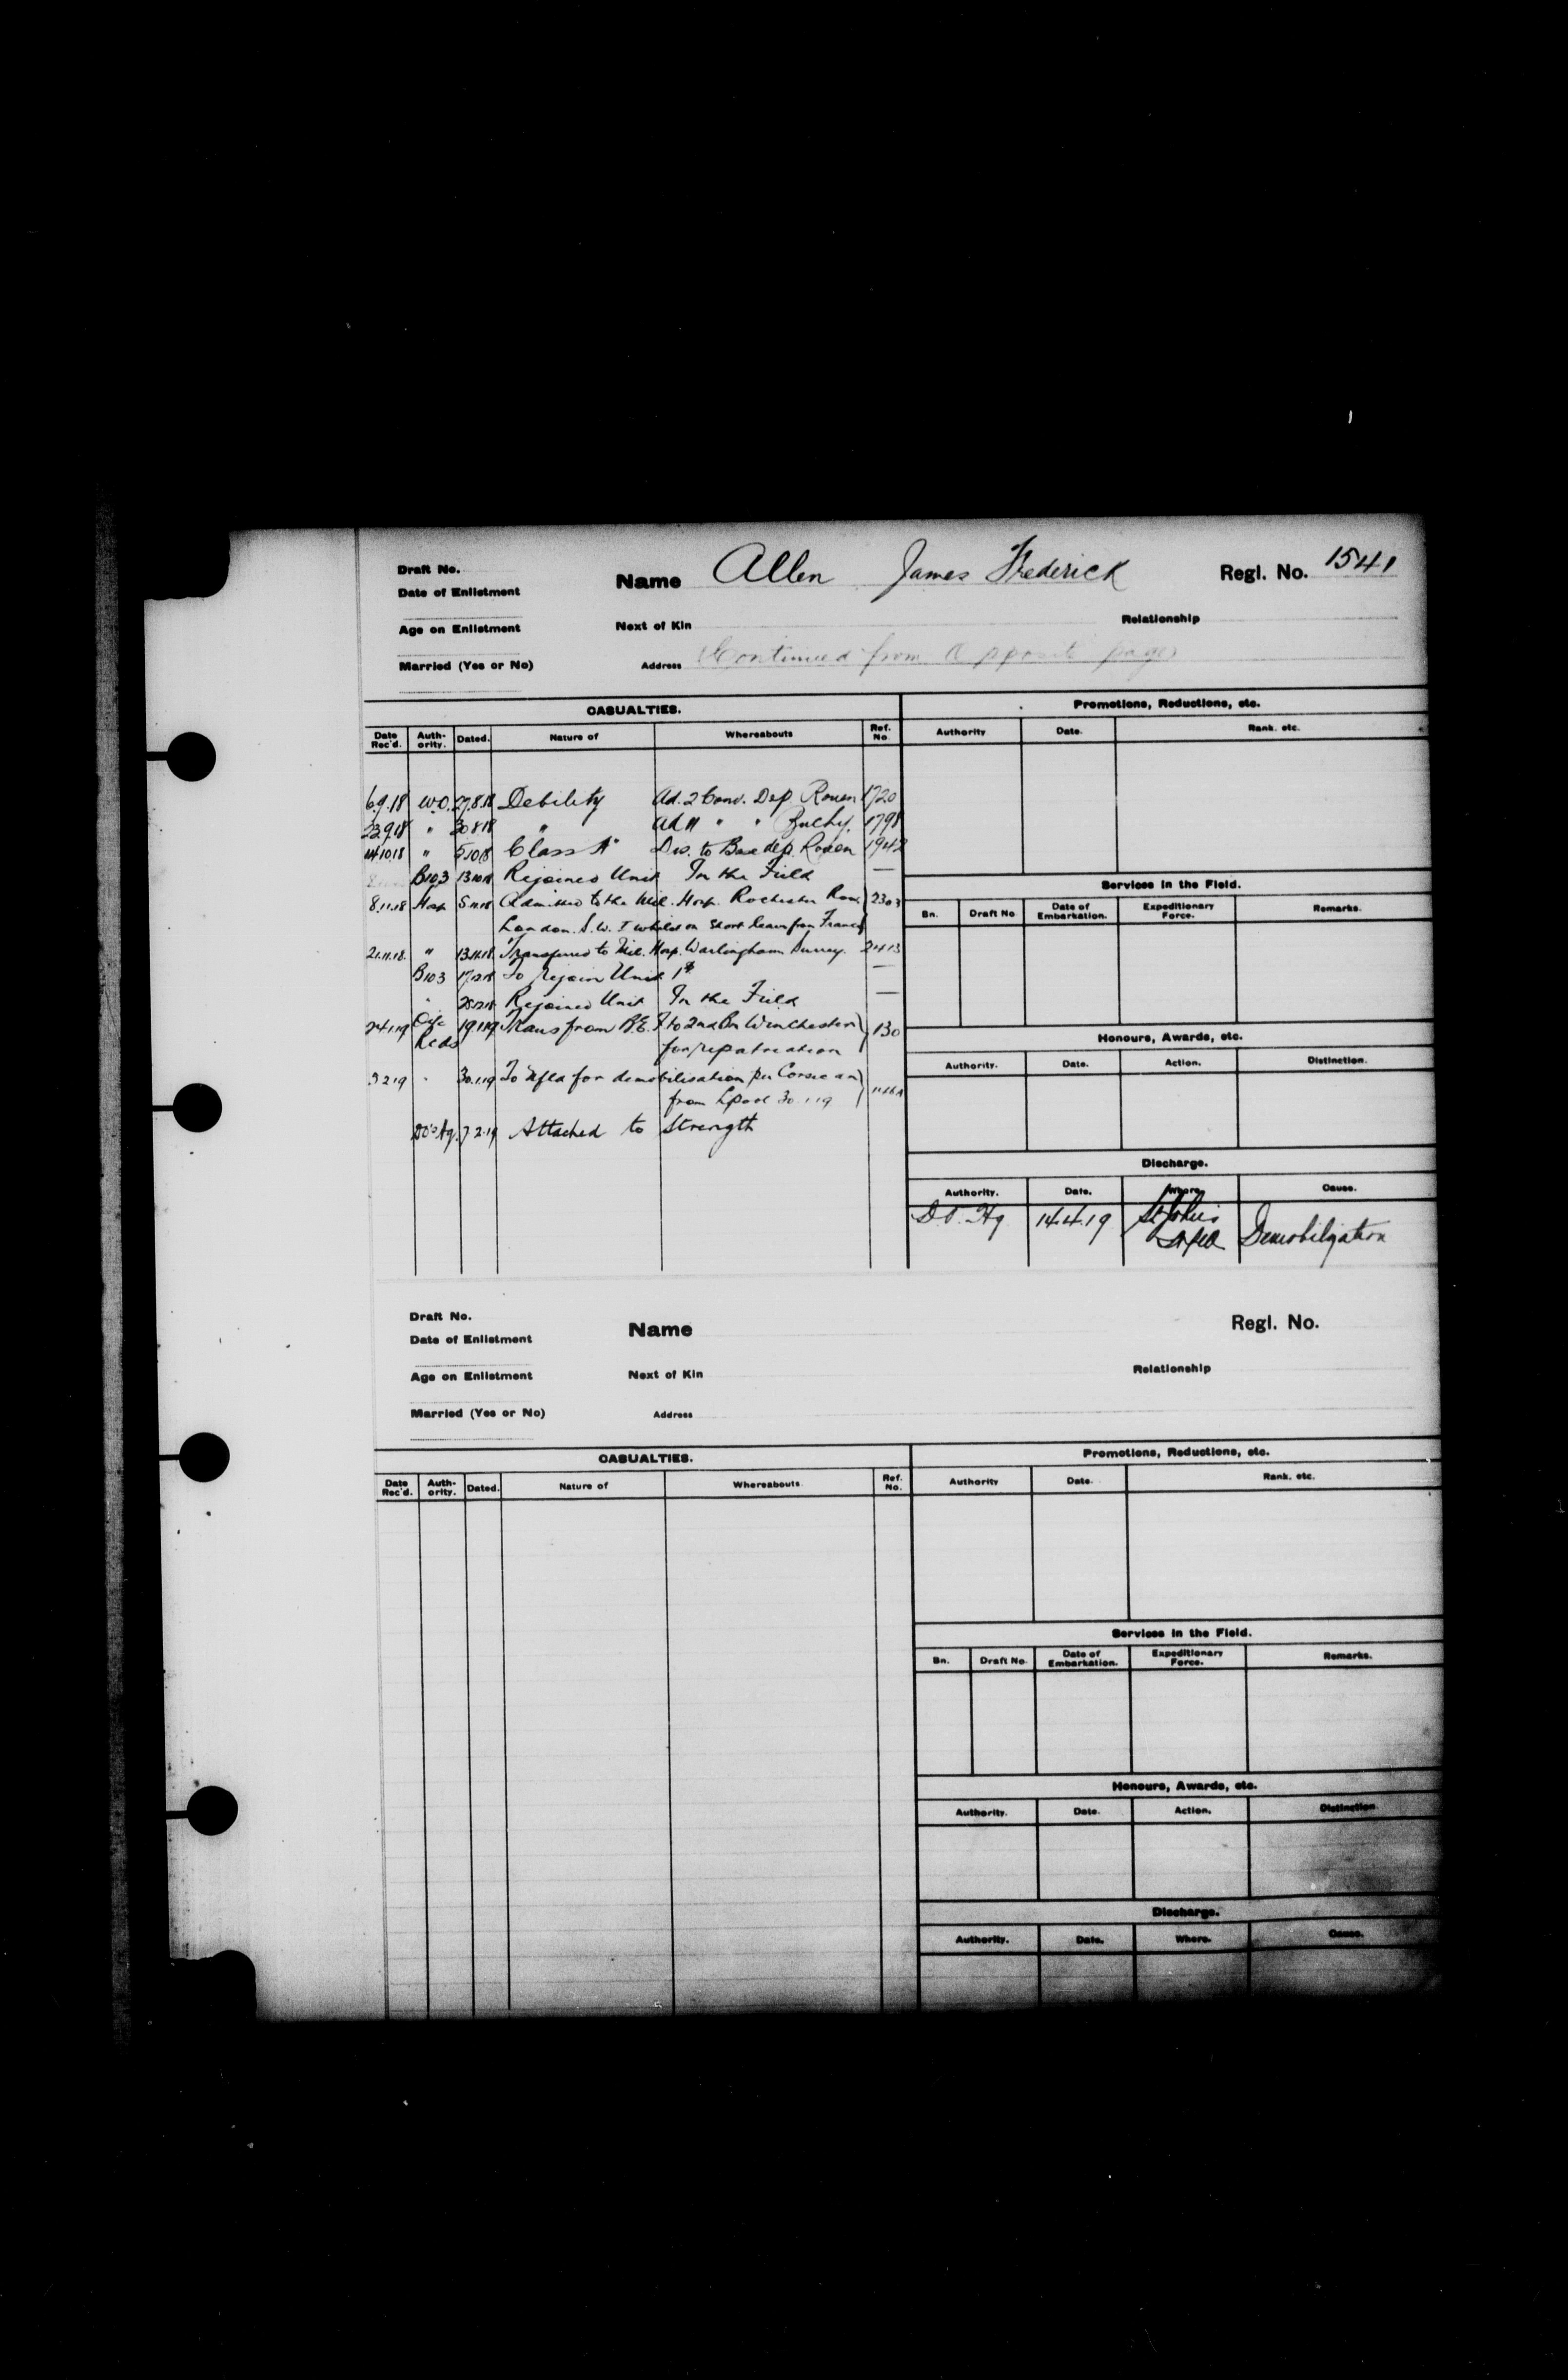 Draft No.
Date of Enlistment
Name Allen James Frederick Regl. No. 1541
Age on Enlistment Next of Kin Relationship
Married (Yes or No) Address (Continued from Opposite page)
CASUALTIES. Promotions, Reductions, etc.
Date Rec'd. Auth-ority. Dated. Nature of Whereabouts Ref. No. Authority Date. Rank. etc.
6.9.18 W.O. 27.8.18 Debility Ad. 2 Conv. Dep. Rouen 1720
23.9.18 " 30.8.18 " Ad 11 " " Buchy. 1798
14.10.18 " 5.10.18 Class "A" Dis. to Base dep. Rouen 1942
B103 13.10.18 Rejoined Unit In the Field —
8.11.18 Hosp 5.11.18 Admitted to the Mil. Hosp. Rochester Row 2303
London. S.W. I whilst on Short leave from France
21.11.18 " 13.11.18 Transferred to Mil. Hosp. Warlingham Surrey. 2413
B103 17.12.18 To rejoin Unit —
" 28.12.18 Rejoined Unit In the Field —
24.1.19 O i/c Rcds 19.1.19 Trans from B.E.F. to 2nd Bn Winchester 130
for repatriation
30.1.19 To Nfld for demobilisation per Corsican
from Lpool 30.1.19
7.2.19 Attached to Strength
Services in the Field.
Bn. Draft No. Date of Embarkation. Expeditionary Force. Remarks.
Honours, Awards, etc.
Authority. Date. Action. Distinction.
Discharge.
Authority. Date. Where. Cause.
14.4.19 St John's Nfld Demobilization
Draft No.
Date of Enlistment
Name Regl. No.
Age on Enlistment Next of Kin Relationship
Married (Yes or No) Address
CASUALTIES. Promotions, Reductions, etc.
Date Rec'd. Auth-ority. Dated. Nature of Whereabouts. Ref. No. Authority Date. Rank. etc.
Services in the Field.
Bn. Draft No. Date of Embarkation. Expeditionary Force. Remarks.
Honours, Awards, etc.
Authority. Date. Action. Distinction
Discharge.
Authority. Date. Where. Cause.